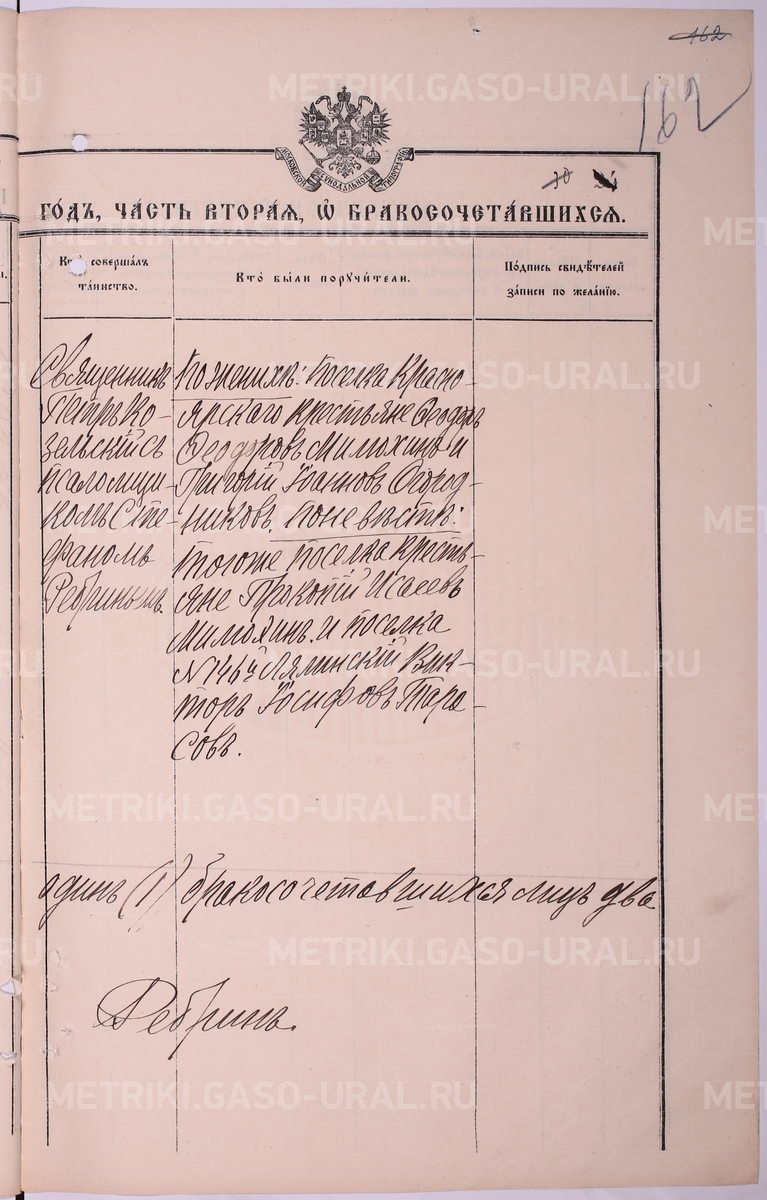 162
162
МОСКОВСКОЙ СѴНОДАЛЬНОЙ ТИПОГРАФІИ
30
ГО́ДЪ, ЧА́СТЬ ВТОРА́Ѧ, Ѡ҆ БРАКОСОЧЕТА́ВШИХСѦ.
Кто̀ соверша́лъ
та́инство.
Кто̀ бы́ли пор​учи́тели.
По́дпись свидѣ́телей
за́писи по жела́нїю.
Священникъ
Петръ Ко-
зельскій съ
псаломщи-
комъ Сте-
фаномъ
Ребринымъ.
По женихѣ: поселка Красно-
ярскаго крестьяне Ѳеодоръ
Ѳеодоровъ Милохинъ и
Григорій Іоанновъ Огород-
никовъ. По невѣстѣ:
тогоже поселка кресть-
яне Прокопій Исаевъ
Милохинъ. И поселка
N 146й Лялинскій Вик-
торъ Іосифовъ Тара-
совъ.
одинъ (1) бракосочетавшихся лицъ два
Ребринъ.
METRIKI.GASO-URAL.RU